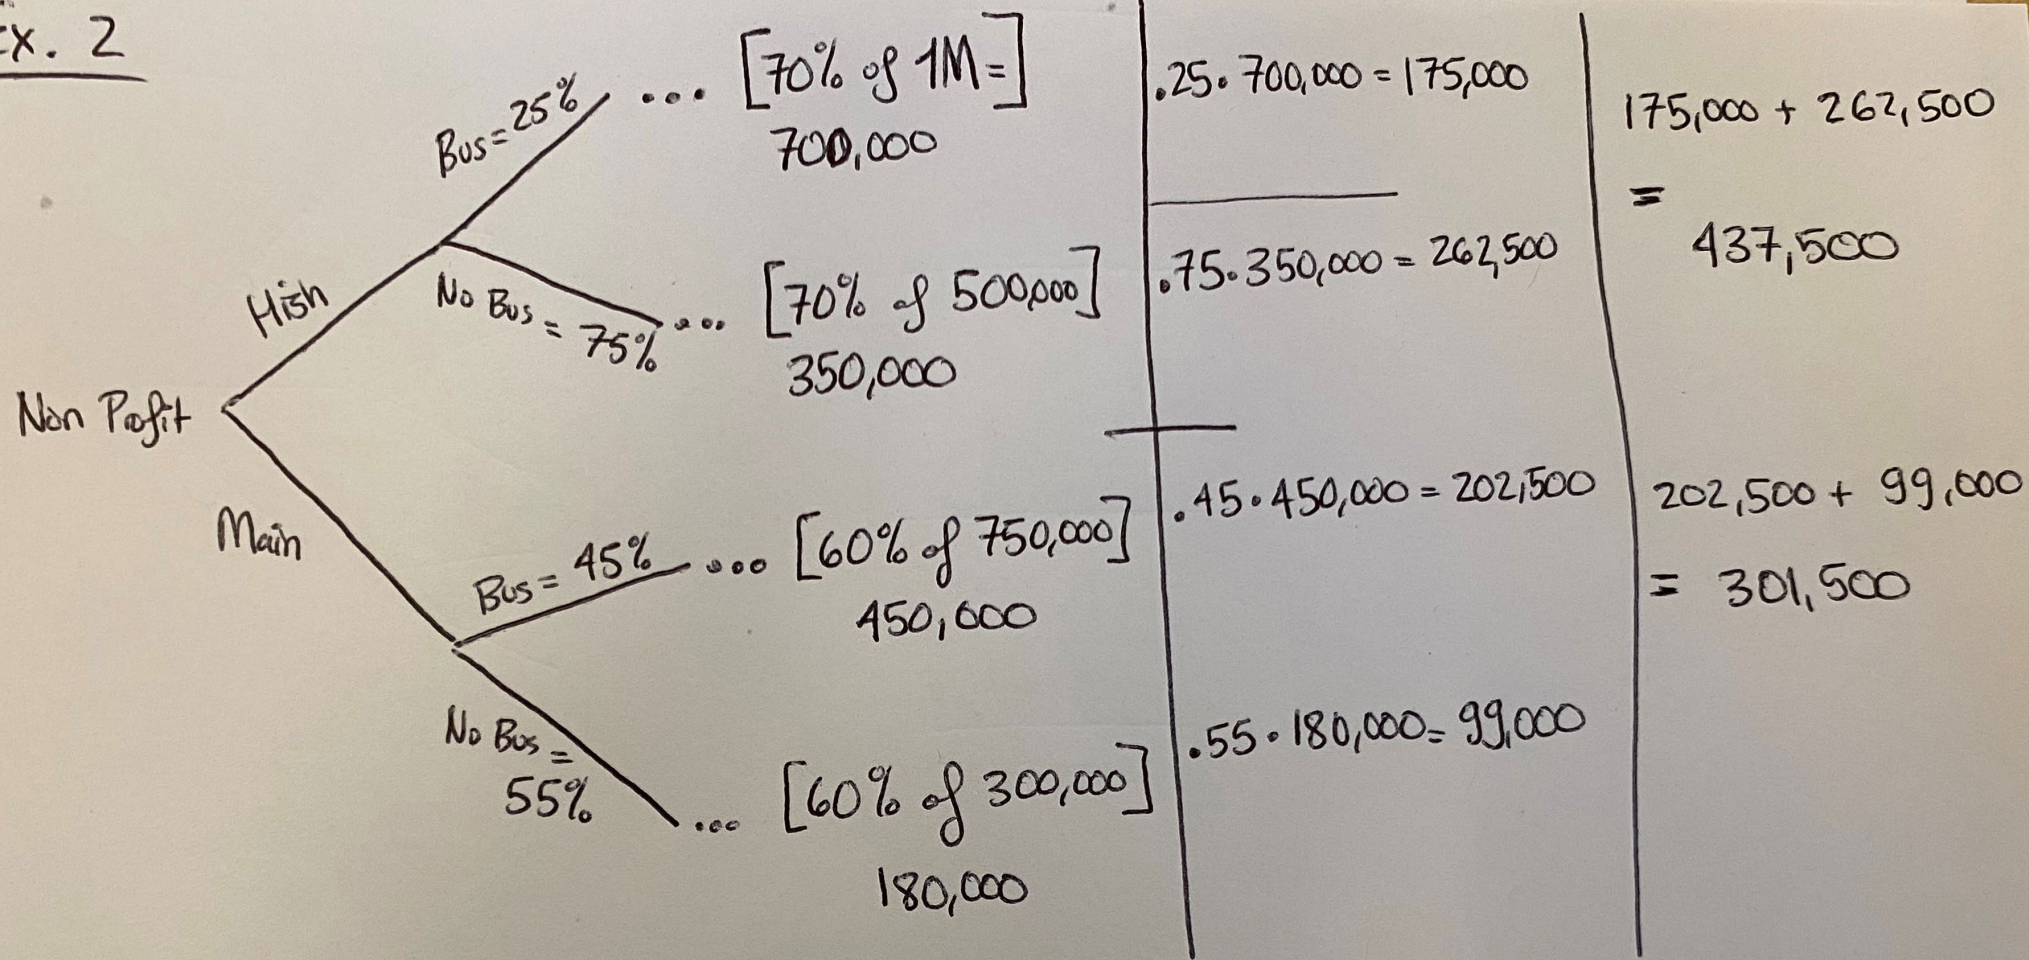 Ex. 2
Non Profit
High
Bus = 25% ... [70% of 1M =]
700,000
No Bus = 75% ... [70% of 500,000]
350,000
Main
Bus = 45% ... [60% of 750,000]
450,000
No Bus =
55% ... [60% of 300,000]
180,000
.25 • 700,000 = 175,000
.75 • 350,000 = 262,500
.45 • 450,000 = 202,500
.55 • 180,000 = 99,000
175,000 + 262,500
=
437,500
202,500 + 99,000
= 301,500